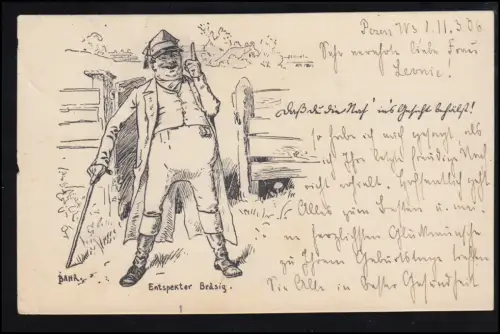 11.3.06
Sehr verehrte liebe Frau
Leonie!
Daß du die Nas' in's Gesicht behälst!
so habe ich mich gefragt als
ich Ihre letzte freudige Nach
richt erhielt. Hoffentlich geht
Alles zum Besten u. mei-
ne herzlichsten Glückwünsche
zu Ihrem Geburtstage treffen
Sie Alle in bester Gesundheit
BAHR
Entspekter Bräsig.